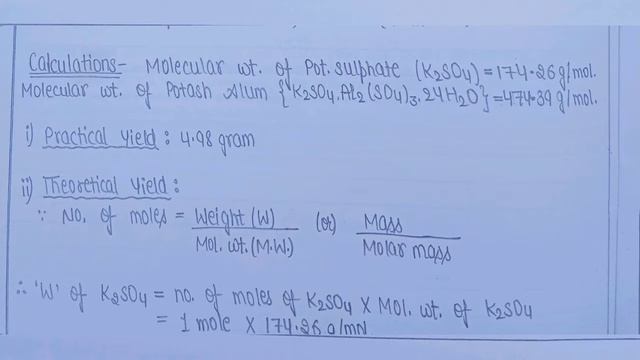 Calculations- Molecular wt. of Pot. sulphate (K₂SO₄) = 174.26 g/mol.
Molecular wt. of Potash Alum {K₂SO₄.Al₂(SO₄)₃.24H₂O} = 474.39 g/mol.
i) Practical yield : 4.98 gram
ii) Theoretical yield :
∵ No. of moles = Weight (W) / Mol. wt. (M.W.) (or) Mass / Molar mass
∴ 'W' of K₂SO₄ = no. of moles of K₂SO₄ X Mol. wt. of K₂SO₄
= 1 mole X 174.26 g/